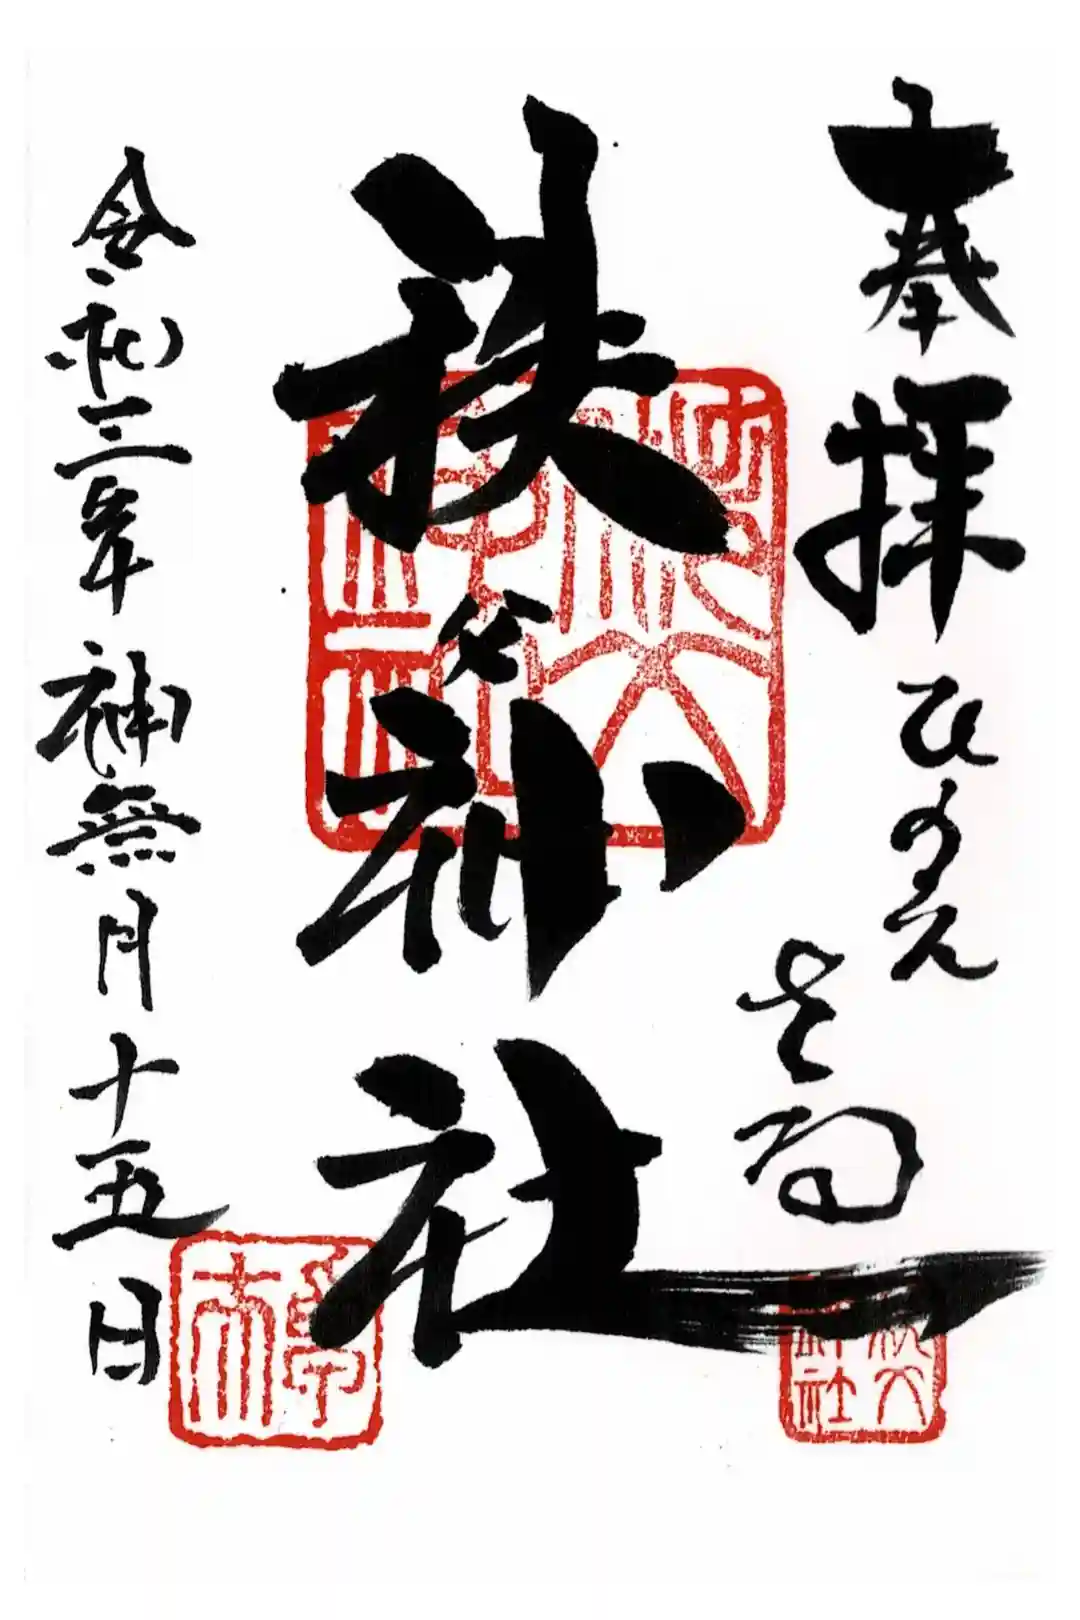 奉拝 ひのえ
さる
秩父神社
令和三年神無月十五日
秩父
神社
秩父
神社